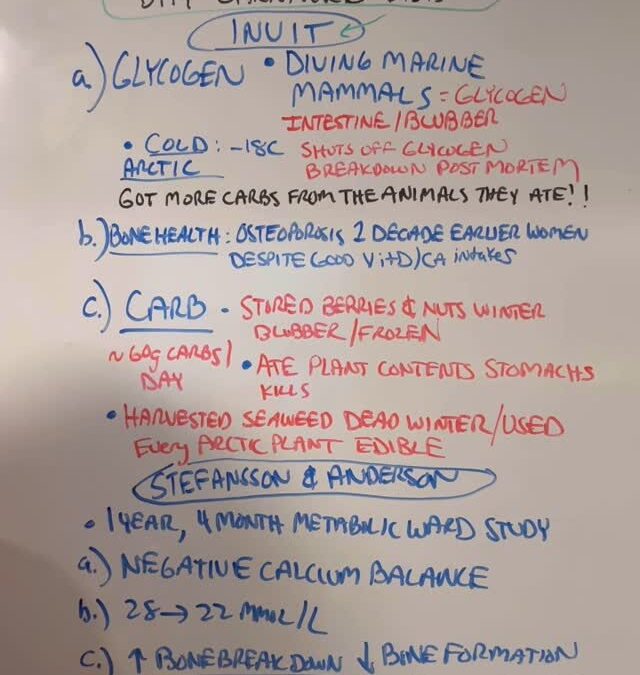 INUIT
a) GLYCOGEN • DIVING MARINE
MAMMALS = GLYCOGEN
INTESTINE/BLUBBER
• COLD: -18C SHUTS OFF GLYCOGEN
ARCTIC BREAKDOWN POST MORTEM
GOT MORE CARBS FROM THE ANIMALS THEY ATE!!
b.) BONE HEALTH: OSTEOPOROSIS 1 DECADE EARLIER WOMEN
DESPITE GOOD VitD/CA intakes
C.) CARB - STORED BERRIES & NUTS WINTER
BLUBBER/FROZEN
~60g CARBS/
DAY
• ATE PLANT CONTENTS STOMACHS
KILLS
• HARVESTED SEAWEED DEAD WINTER/USED
Every ARCTIC PLANT EDIBLE
STEFANSSON & ANDERSON
• 1 YEAR, 4 MONTH METABOLIC WARD STUDY
a.) NEGATIVE CALCIUM BALANCE
b.) 28→22 MMOL/L
C.) ↑ BONE BREAKDOWN ↓ BONE FORMATION